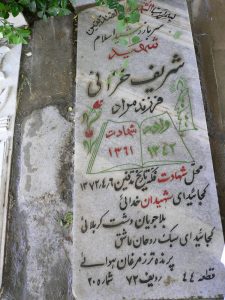 سرباز اسلام
شهید
شریف خزانی
فرزند مردان
ولادت
۱۳۴۳
شهادت
۱۳۶۱
محل شهادت فکه تاریخ تدفین ۱۳۷۲/۴/۶
کجائید ای شهیدان خدائی
بلاجویان دشت کربلائی
کجائید ای سبک روحان عاشق
پرنده تر ز مرغان هوائی
قطعه ۴۴ ردیف ۷۲ شماره ۲۰